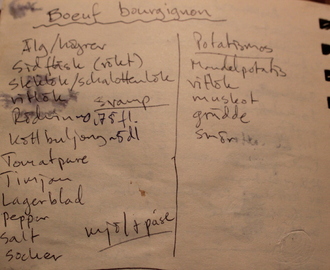 Boeuf bourguignon
Älg/högrev
Sidfläsk (rökt)
Steklök/schalottenlök
vitlök svamp
Rödvin 0,75 fl.
Köttbuljong
Tomatpure
Timjan
Lagerblad
Peppar
Salt
socker
mjöl
Potatismos
Mandelpotatis
vitlök
muskot
grädde
smör